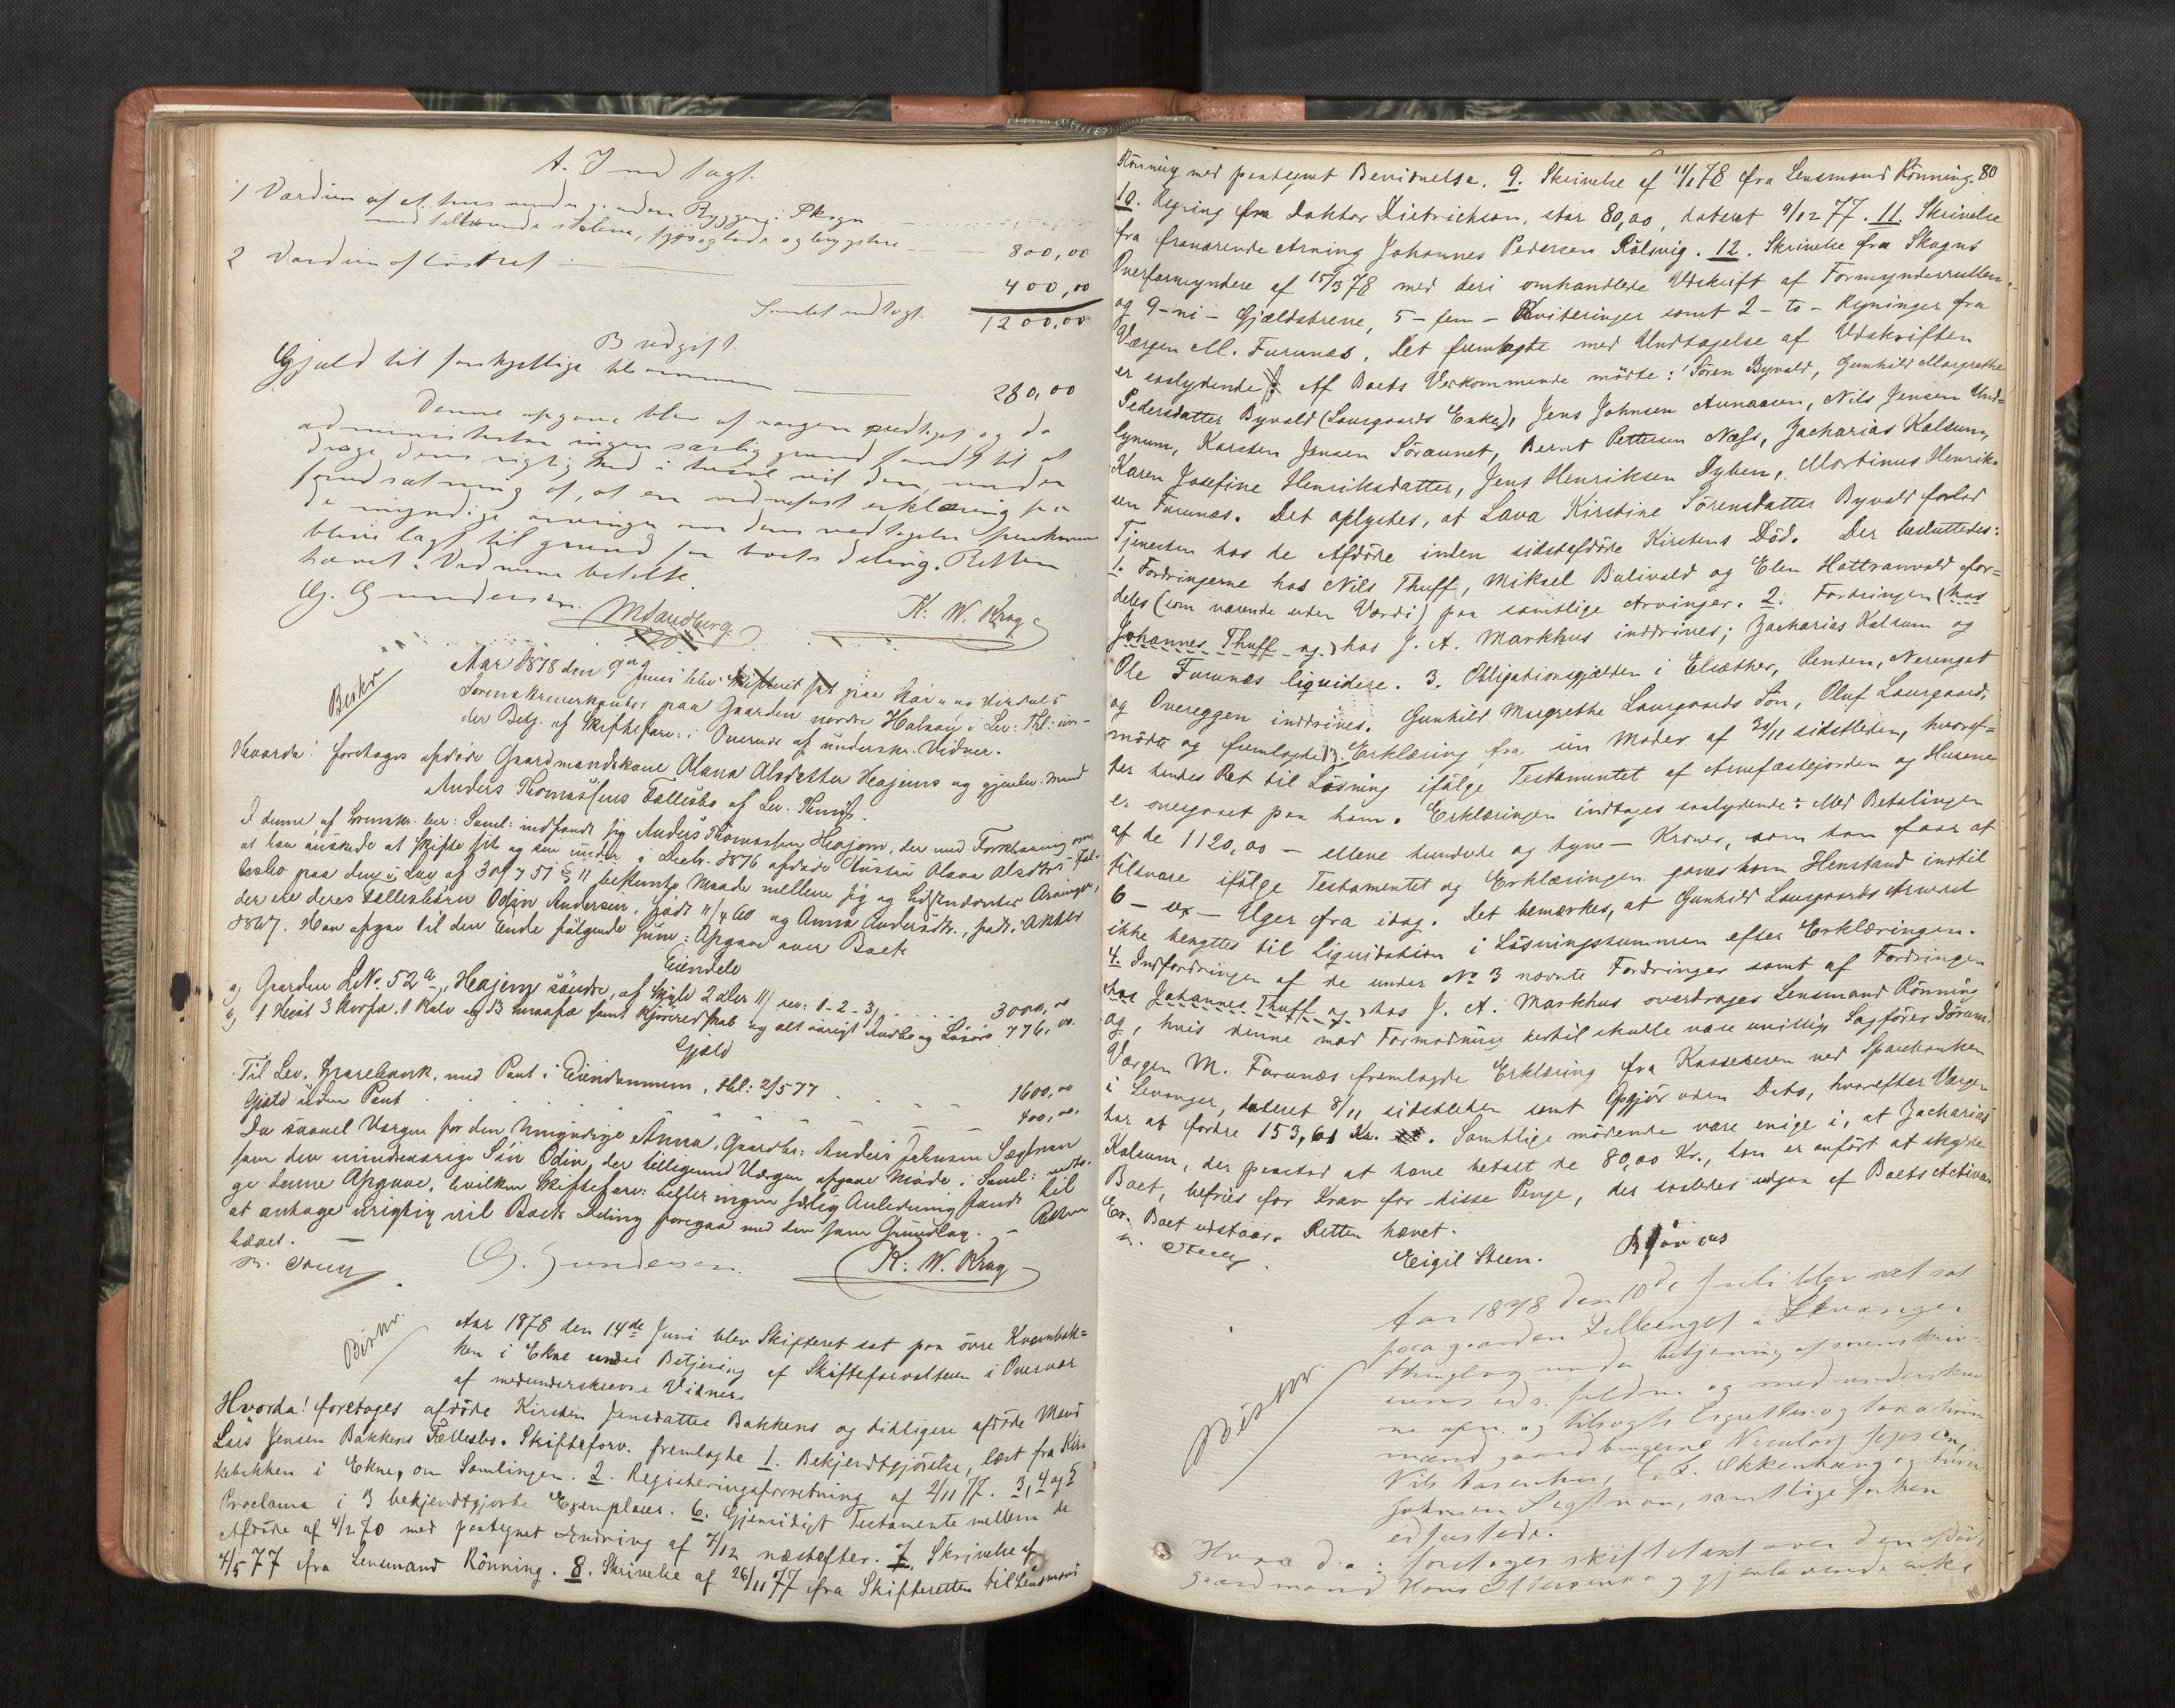 A. Indtægt.
1 Værdien af et huus ... Byggeri i Skogn
med tilhørende stolena, fjøs og lade og bryghus 800,00
2 Værdien af løsøret 400,00
Samlet indtægt. 1200,00
B udgift.
Gjæld til forskjellige tilsammen 280,00
Denne opgave blev af værgen vedtaget og da
administrator ingen særlig grund fandt til at
drage dens rigtighed i tvivl vil den, under
forudsætning af, at en vidnefast erklæring fra
de myndige arvinger om dens vedtagelse fremkommer
blive lagt til grund for boets deling. Retten
hævet. Ved mine betalte.
G. Gundersen. M Sandberg. K. W. Krag
Beskr
Aar 1878 den 7de Juni blev Skifteret sat paa
Sorenskriverkontor paa Gaarden nordre Halsan i Lev: Thl: un-
der Betj. af Skifteforv: i Overvær af underskr. Vidner.
Hvorda! foretoges afdøde Gaardmandskone Olava Olsdatter Heajems og gjenlev. Mand
Anders Thomassens Fællesbo af Lev. Thingl.
I denne af Sorenskr. ber: Saml: indfandt sig Anders Thomassen Heajem, der med Forklaring om,
at han ønskede at skifte sit og sin under i Decbr. 1876 afdøde Hustru Olava Olsdtrs Fæl-
lesbo paa den i Lov af 30/7 51 § 11 bestemte Maade mellem sig og Sidstnævntes Arvinger,
der ere deres Fællesbørn Odin Andersen, født 11/4 60 og Anna Andersdtr., født i Oktbr
1867. Han afgav til den Ende følgende Summ: Opgave over Boet
Eiendele
a, Gaarden LNo. 52a, Heajem søndre, af Skyld 2 Daler 11/ rev: 1-2-3, 3000,00
b, 1 Hest 3 Storfæ, 1 Kalv og 13 Smaafæ samt Kjøreredskab og alt øvrigt Indbo og Løsøre 776,00.
Gjæld
Til Lev. Sparebank. med Pant i Eiendommen, Obl: 2/5 77 1600,00
Gjæld uden Pant 400,00.
Da saavel Værgen for den Umyndige Anna, Gaardbr: Anders Johnsen Sægtnan
som den mindreaarige Søn Odin, der tilligemed Værgen afgave Møde i Saml: vedto-
ge denne Opgave, hvilken Skifteforv: heller ingen særlig Anledning fandt til
at antage urigtig vil Boets Deling foregaa med den som Grundlag. – Retten
hævet. –
N. Steen G. Gundersen. K. W. Krag
Beskr.
Aar 1878 den 14de Juni blev Skifteret sat paa øvre Kvernbæk=
ken i Ekne under Betjening af Skifteforvalteren i Overvær
af medunderskrevne Vidner.
Hvorda! foretoges afdøde Kirsten Jensdatter Bakkens og tidligere afdøde Mand
Lars Jensen Bakkens Fællesbo. Skifteforv. fremlagde 1. Bekjendtgjørelse, læst fra Kir-
kebakken i Ekne, om Samlingen. 2. Registreringsforretning af 2/11 77. 3, 4 og 5
Proclama i 3 bekjendtgjorte Exemplarer. 6. Gjensidigt Testamente mellem de
Afdøde af 4/2 70 med paategnet Ændring af 7/12 næstefter. 7. Skrivelse af
4/5 77 fra Lensmand Rønning. 8. Skrivelse af 26/11 77 fra Skifteretten til Lensmand
Rønning med paategnet Bevidnelse. 9. Skrivelse af 11/1 78 fra Lensmand Rønning. 80
10. Regning fra Doktor Dietrichson, stor 80,00, dateret 9/12 77. 11. Skrivelse
fra fraværende Arving Johannes Pedersen Rølsvig. 12. Skrivelse fra Skogns
Overformyndere af 15/3 78 med deri omhandlede Udskrift af Formynderrullen
og 9 – ni – Gjældsbreve, 5 – fem – Kviteringer samt 2 – to – Regninger fra
Værgen M. Furunæs. Det fremlagte med Undtagelse af Udskriften
er saalydende: Af Boets Vedkommende mødte: Søren Byvald, Gunhild Margrethe
Pedersdatter Byvald (Laurgaards Enke), Jens Johnsen Aunaasen, Nils Jensen Und=
lynum, Karsten Jensen Søraunet, Bernt Pettersen Næss, Zacharias Kalsum,
Karen Josefine Henriksdatter, Jens Henriksen Dyben, Mortinus Henrik-
sen Furunæs. Det oplystes, at Lava Kirstine Sørensdatter Byvald forlod
Tjenesten hos de Afdøde inden sidstafdøde Kirstens Død. Der besluttedes:
1. Fordringerne hos Nils Thuff, Mikael Bulivald og Elen Hattranvald for=
deles (som værende uden Værdi) paa samtlige Arvinger. 2. Fordringen (hos
Johannes Thuff og) hos J. A. Markhus inddrives; Zacharias Kalsum og
Ole Furunæs liquidere. 3. Obligationsgjælden i Elsæther, Renden, Nerenget
og Overeggen inddrives. Gunhild Margrethe Laurgaards Søn, Oluf Laurgaard,
mødte og fremlagde 13. Erklæring fra sin Moder af 30/11 sidstleden, hvoref=
ter hendes Ret til Løsning ifølge Testamentet af Arvefæstejorden og Husene
er overgaaet paa ham. Erklæringen indtages saalydende: Med Betalingen
af de 1120,00 – elleve hundrede og tyve – Kroner, som han faar at
tilsvare ifølge Testamentet og Erklæringen gaves ham Henstand indtil
6 – sex – Uger fra idag. Det bemærkes, at Gunhild Laurgaards Arvelod
ikke benyttes til Liquidation i Løsningssummen efter Erklæringen.
4. Indfordringen af de under No 3 nævnte Fordringer samt af Fordringen
(hos Johannes Thuff og) hos J. A. Markhus overdrages Lensmand Rønning
og, hvis denne mod Formodning dertil skulle være uvillig, Sagfører Jørum.
Værgen M. Furunæs fremlagde Erklæring fra Kassereren ved Sparebanken
i Levanger, dateret 8/11 sidstleden samt Opgjør uden Dato, hvorefter Værgen
har at fordre 153,61 Kr. Samtlige mødende vare enige i, at Zacharias
Kalsum, der paastod at have betalt de 80,00 Kr., han er anført at skylde
Boet, befries for Krav for disse Penge, der saaledes udgaa af Boets Activa.
Boet udstaar. Retten hævet.
N. Steen Eigil Steen.
Beskr
Aar 1878 den 10de Juli blev ret sat
paa gaarden Lillenget i Levanger
thinglag under betjening af sorenskriv-
... og med underskrev-
ne opn. og tilsagte ... og taxations-
mænd gaardbrugerne Nicolay Jepsen,
Nils Aasenhus, C. F. Ekkenhaug og ...
Johnsen Sægtnan, samtlige forhen
edfæstede.
Hvorda: foretoges skiftetaxt over den afdøde
gaardmand Hans ... og gjenlevende enke